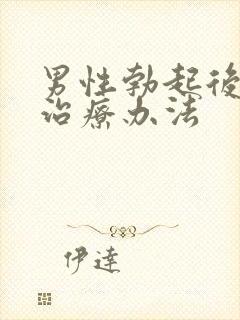 男性勃起後
治療办法
伊達